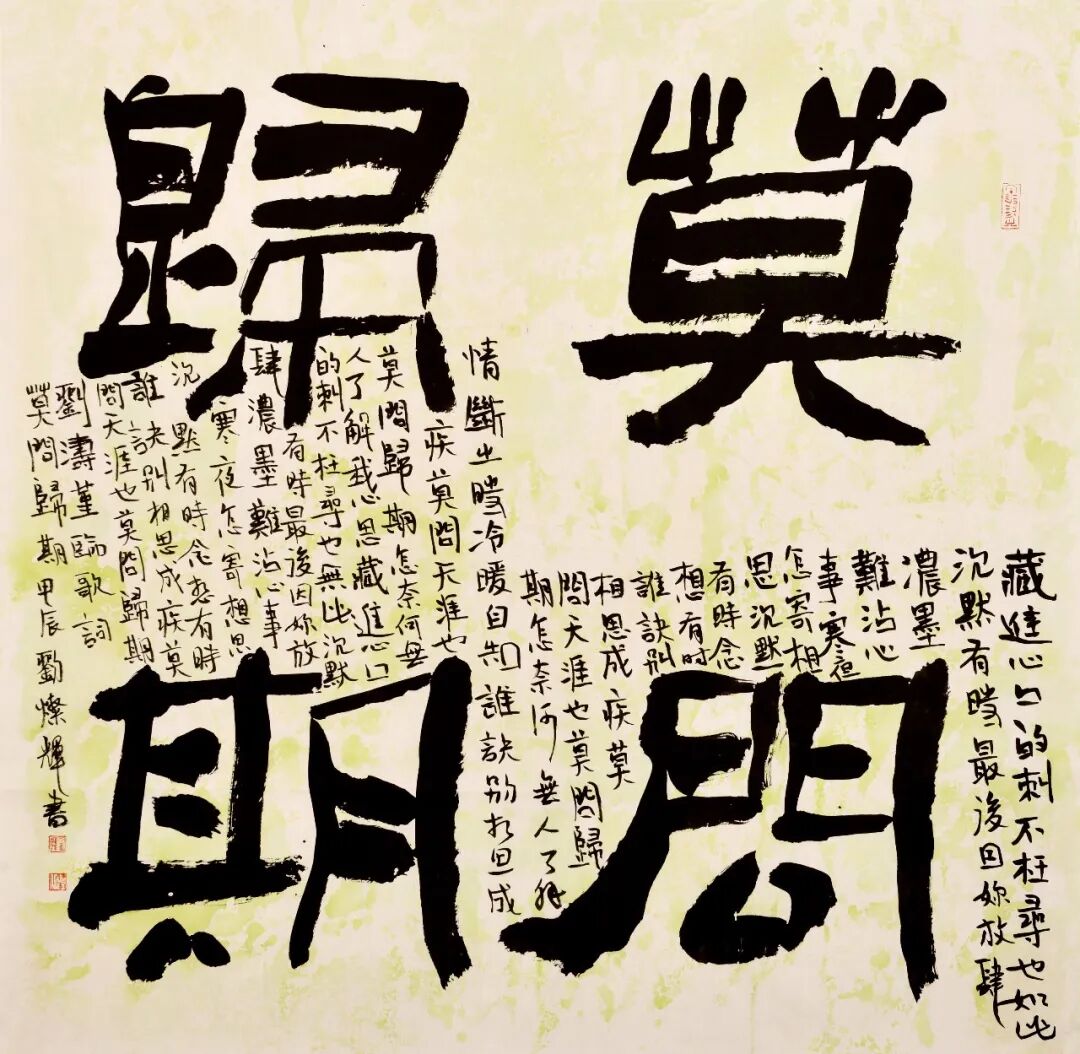 莫問
歸期
藏進心口的刺不枉尋也如此
沉默有時最後因妳放肆
濃墨
難沾心
事寒夜
怎寄相
思沉默
有時念
想有时
誰訣别
相思成疾莫
問天涯也莫問歸
期怎奈何無人了解
情斷之時冷暖自知誰訣别相思成
疾莫問天涯也
莫問歸期怎奈何無
人了解我心思藏進心口
的刺不枉尋也無比沉默
有時最後因妳放
肆濃墨難沾心事
寒夜怎寄想思
沉默有時念想有時
誰訣别相思成疾莫
問天涯也莫問歸期
劉濤董臨歌詞
莫問歸期甲辰劉燦輝書